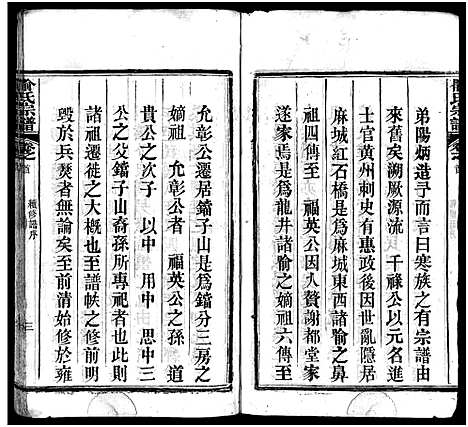 弟陽炳造予而言曰寒族之有宗譜由
來舊矣溯厥源流　千祿公以元名進
士官黃州刺史有惠政後因世亂隱居
麻城紅石橋是爲麻城東西諸喻之鼻
祖四傳至　福英公因入贅謝都堂家
遂家焉是爲龍井諸喻之嫡祖六傳至
喻氏宗譜
卷之首
續修譜序
三
允彰公遷居鐺子山是爲鐺分三房之
嫡祖　允彰公者　福英公之孫　道
貴公之次子　以中　用中　思中三
公之父鐺子山裔孫所專祀者也此予
諸祖遷徙之大概也至譜帙之修前明
毀於兵燹者無論矣至前清始修於雍